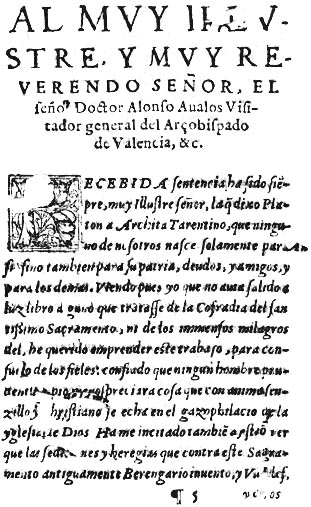 AL MVY ILLV-
STRE, Y MVY RE-
VERENDO SEÑOR, EL
señor Doctor Alonso Aualos Visi-
tador general del Arçobispado
de Valencia, &c.
RECEBIDA sentencia ha sido siē-
pre, muy Illustre señor, la q̃ dixo Pla-
ton a Archita Tarentino, que ningu-
no de nosotros nasce solamente para
si sino tambien para su patria, deudos, y amigos, y
para los demas. Viendo pues yo que no auia salido a
luz libro alguno que tratasse de la Cofradia del san
tissimo Sacramento, ni de los immensos milagros
del, he querido emprender este trabajo, para con-
suelo de los fieles: confiado que ningun hombre pru-
dente preciara cosa que con animo sen-
zillo y christiano se echa en el gazophilacio de la
yglesia de Dios. Ha me incitado tambiē a esto ver
que las sectas y heregias que contra este Sacra-
mento antiguamente Berengario inuento, y
¶ 5